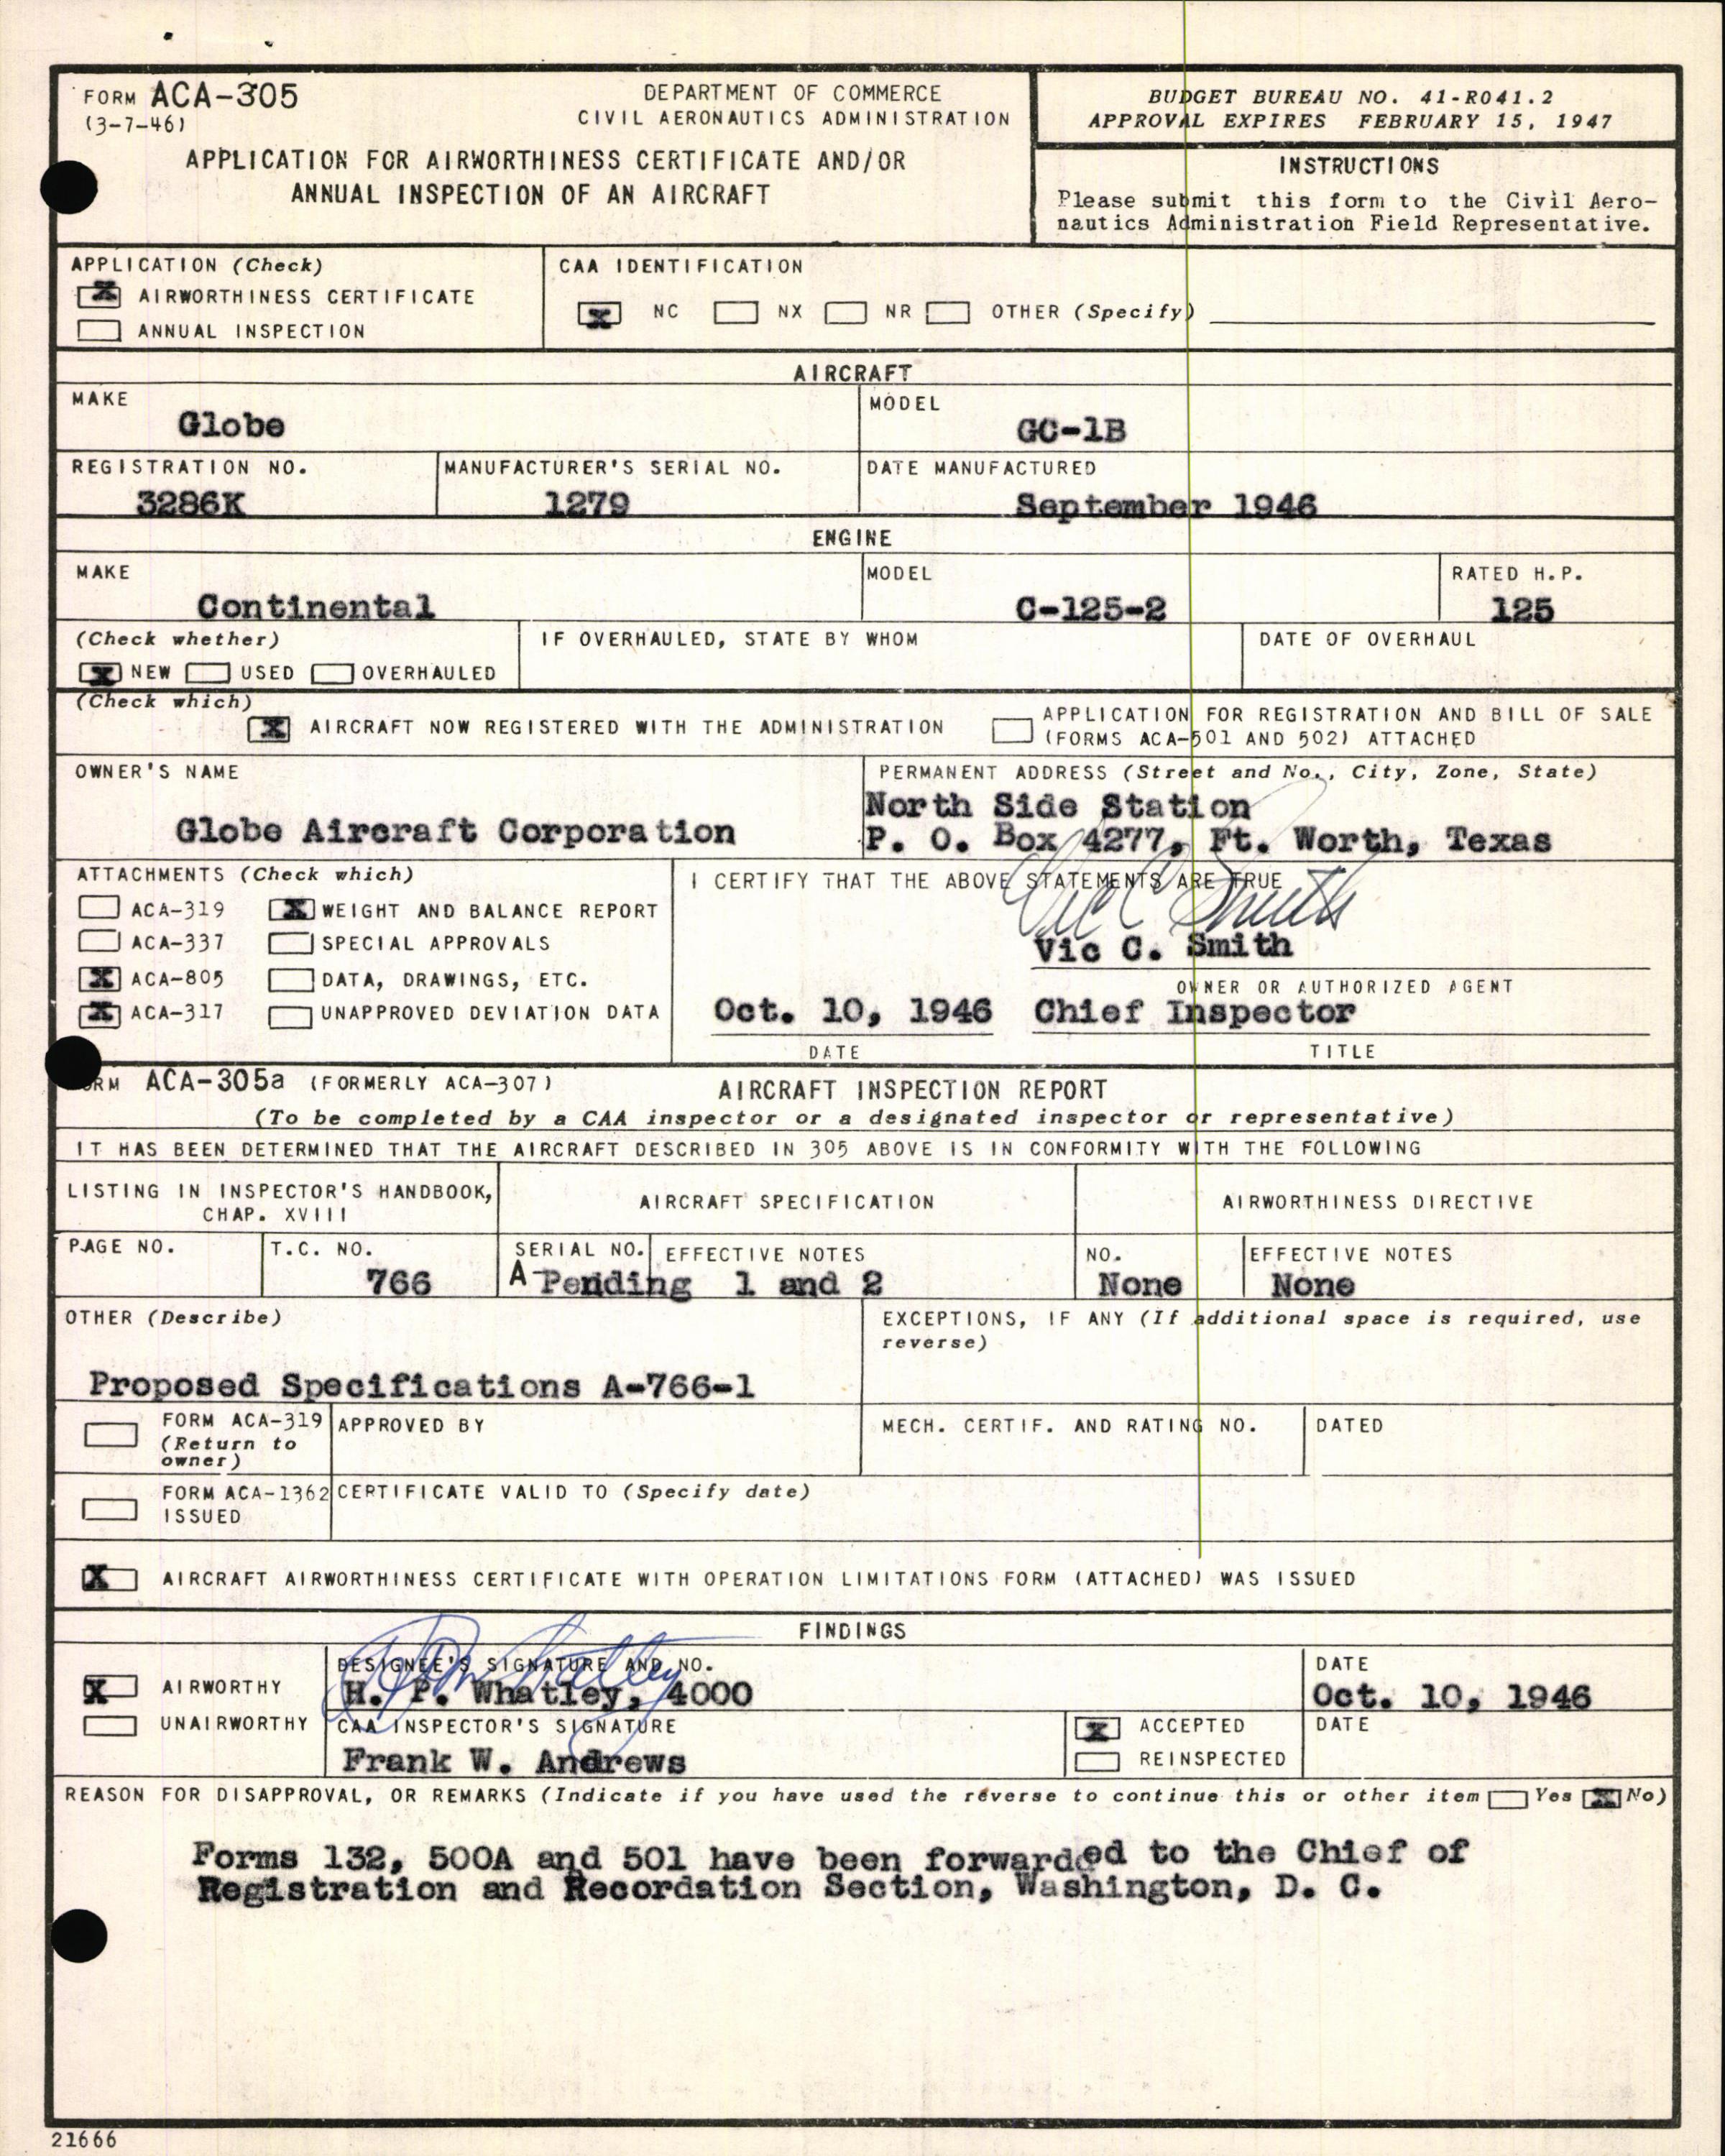 FORM ACA-305
(3-7-46)
DEPARTMENT OF COMMERCE
CIVIL AERONAUTICS ADMINISTRATION
APPLICATION FOR AIRWORTHINESS CERTIFICATE AND/OR
ANNUAL INSPECTION OF AN AIRCRAFT
BUDGET BUREAU NO. 41-R041.2
APPROVAL EXPIRES FEBRUARY 15, 1947
INSTRUCTIONS
Please submit this form to the Civil Aero-
nautics Administration Field Representative.
APPLICATION (Check)
X AIRWORTHINESS CERTIFICATE
ANNUAL INSPECTION
CAA IDENTIFICATION
X NC NX NR OTHER (Specify)
AIRCRAFT
MAKE
Globe
MODEL
GC-1B
REGISTRATION NO.
3286K
MANUFACTURER'S SERIAL NO.
1279
DATE MANUFACTURED
September 1946
ENGINE
MAKE
Continental
MODEL
C-125-2
RATED H.P.
125
(Check whether)
X NEW USED OVERHAULED
IF OVERHAULED, STATE BY WHOM
DATE OF OVERHAUL
(Check which)
X AIRCRAFT NOW REGISTERED WITH THE ADMINISTRATION
APPLICATION FOR REGISTRATION AND BILL OF SALE
(FORMS ACA-501 AND 502) ATTACHED
OWNER'S NAME
Globe Aircraft Corporation
PERMANENT ADDRESS (Street and No., City, Zone, State)
North Side Station
P. O. Box 4277, Ft. Worth, Texas
ATTACHMENTS (Check which)
ACA-319 X WEIGHT AND BALANCE REPORT
ACA-337 SPECIAL APPROVALS
X ACA-805 DATA, DRAWINGS, ETC.
X ACA-317 UNAPPROVED DEVIATION DATA
I CERTIFY THAT THE ABOVE STATEMENTS ARE TRUE
Vic C Smith
Vic C. Smith
OWNER OR AUTHORIZED AGENT
Oct. 10, 1946 Chief Inspector
DATE TITLE
FORM ACA-305a (FORMERLY ACA-307) AIRCRAFT INSPECTION REPORT
(To be completed by a CAA inspector or a designated inspector or representative)
IT HAS BEEN DETERMINED THAT THE AIRCRAFT DESCRIBED IN 305 ABOVE IS IN CONFORMITY WITH THE FOLLOWING
LISTING IN INSPECTOR'S HANDBOOK,
CHAP. XVIII
AIRCRAFT SPECIFICATION
AIRWORTHINESS DIRECTIVE
PAGE NO.
T.C. NO.
766
SERIAL NO.
A-Pending
EFFECTIVE NOTES
1 and 2
NO.
None
EFFECTIVE NOTES
None
OTHER (Describe)
Proposed Specifications A-766-1
EXCEPTIONS, IF ANY (If additional space is required, use
reverse)
FORM ACA-319
(Return to
owner)
APPROVED BY
MECH. CERTIF. AND RATING NO.
DATED
FORM ACA-1362
ISSUED
CERTIFICATE VALID TO (Specify date)
X AIRCRAFT AIRWORTHINESS CERTIFICATE WITH OPERATION LIMITATIONS FORM (ATTACHED) WAS ISSUED
FINDINGS
X AIRWORTHY
UNAIRWORTHY
DESIGNEE'S SIGNATURE AND NO.
H. P. Whatley, 4000
DATE
Oct. 10, 1946
CAA INSPECTOR'S SIGNATURE
Frank W. Andrews
X ACCEPTED
REINSPECTED
DATE
REASON FOR DISAPPROVAL, OR REMARKS (Indicate if you have used the reverse to continue this or other item Yes X No)
Forms 132, 500A and 501 have been forwarded to the Chief of
Registration and Recordation Section, Washington, D. C.
21666